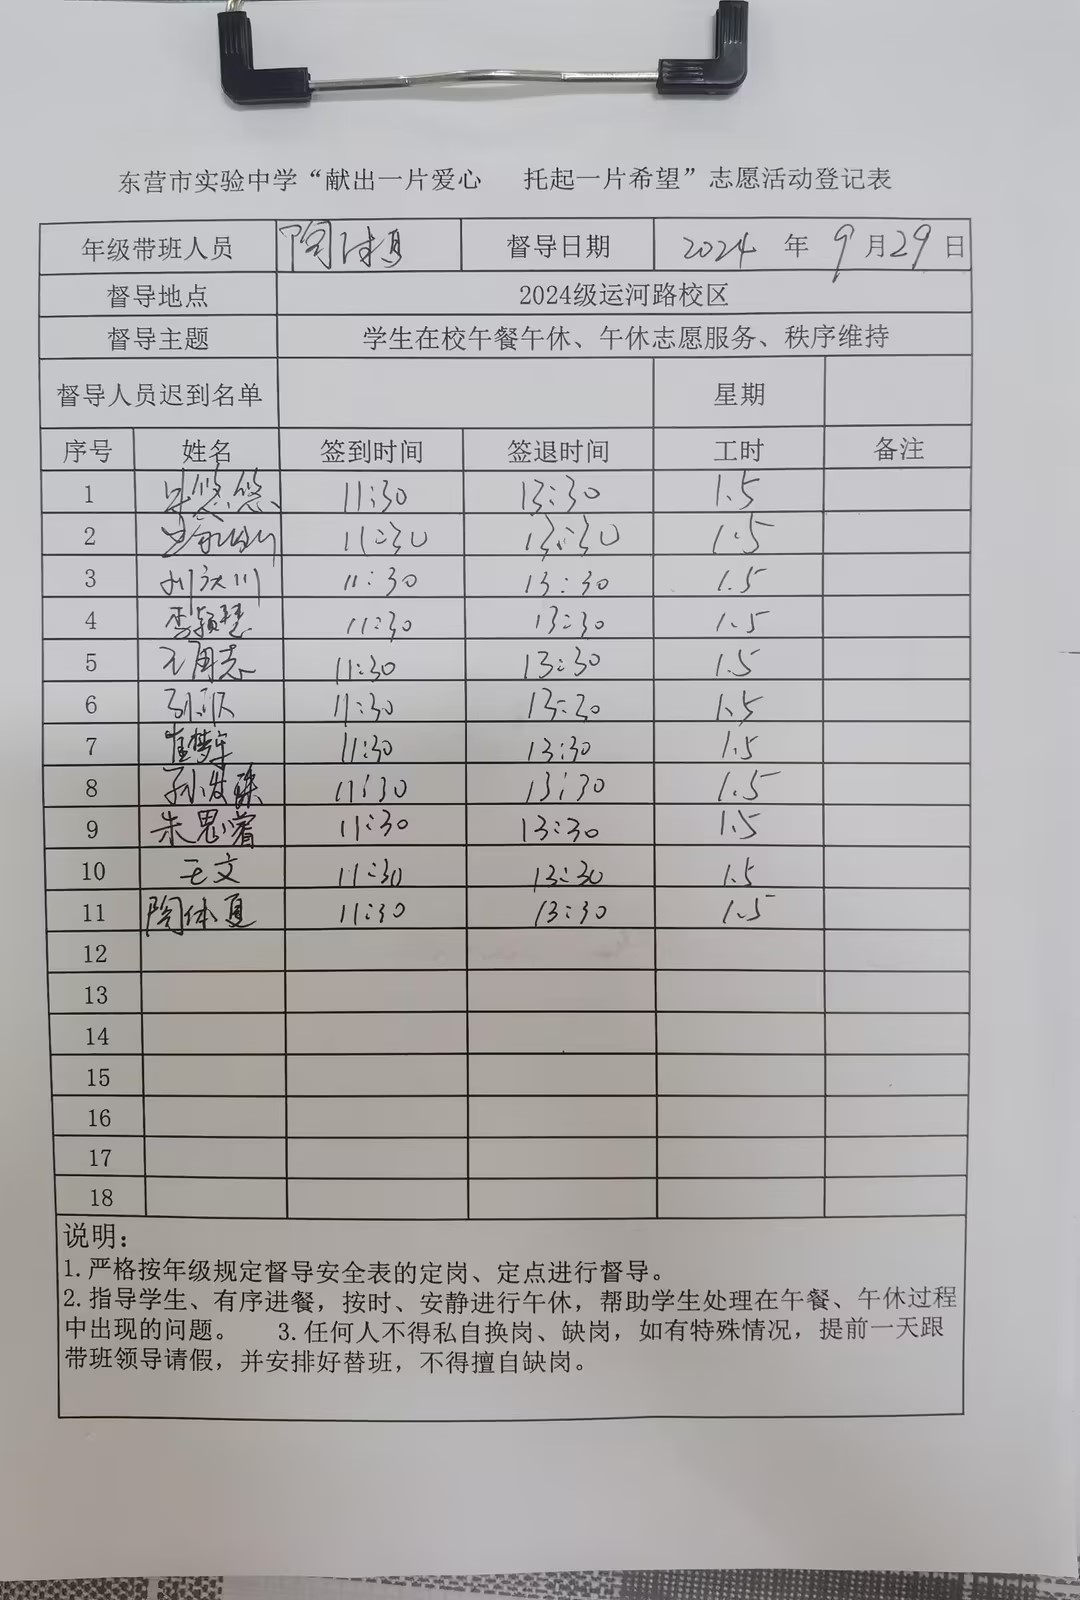 东营市实验中学“献出一片爱心 托起一片希望”志愿活动登记表
年级带班人员 陶体夏 督导日期 2024 年 9 月 29 日
督导地点 2024级运河路校区
督导主题 学生在校午餐午休、午休志愿服务、秩序维持
督导人员迟到名单 星期
序号 姓名 签到时间 签退时间 工时 备注
1 悠悠 11:30 13:30 1.5
2 11:30 13:30 1.5
3 刘汉川 11:30 13:30 1.5
4 李颖慧 11:30 13:30 1.5
5 王周志 11:30 13:30 1.5
6 11:30 13:30 1.5
7 崔梦 11:30 13:30 1.5
8 孙 11:30 13:30 1.5
9 朱思睿 11:30 13:30 1.5
10 王文 11:30 13:30 1.5
11 陶体夏 11:30 13:30 1.5
12
13
14
15
16
17
18
说明：
1.严格按年级规定督导安全表的定岗、定点进行督导。
2.指导学生、有序进餐，按时、安静进行午休，帮助学生处理在午餐、午休过程
中出现的问题。 3.任何人不得私自换岗、缺岗，如有特殊情况，提前一天跟
带班领导请假，并安排好替班，不得擅自缺岗。